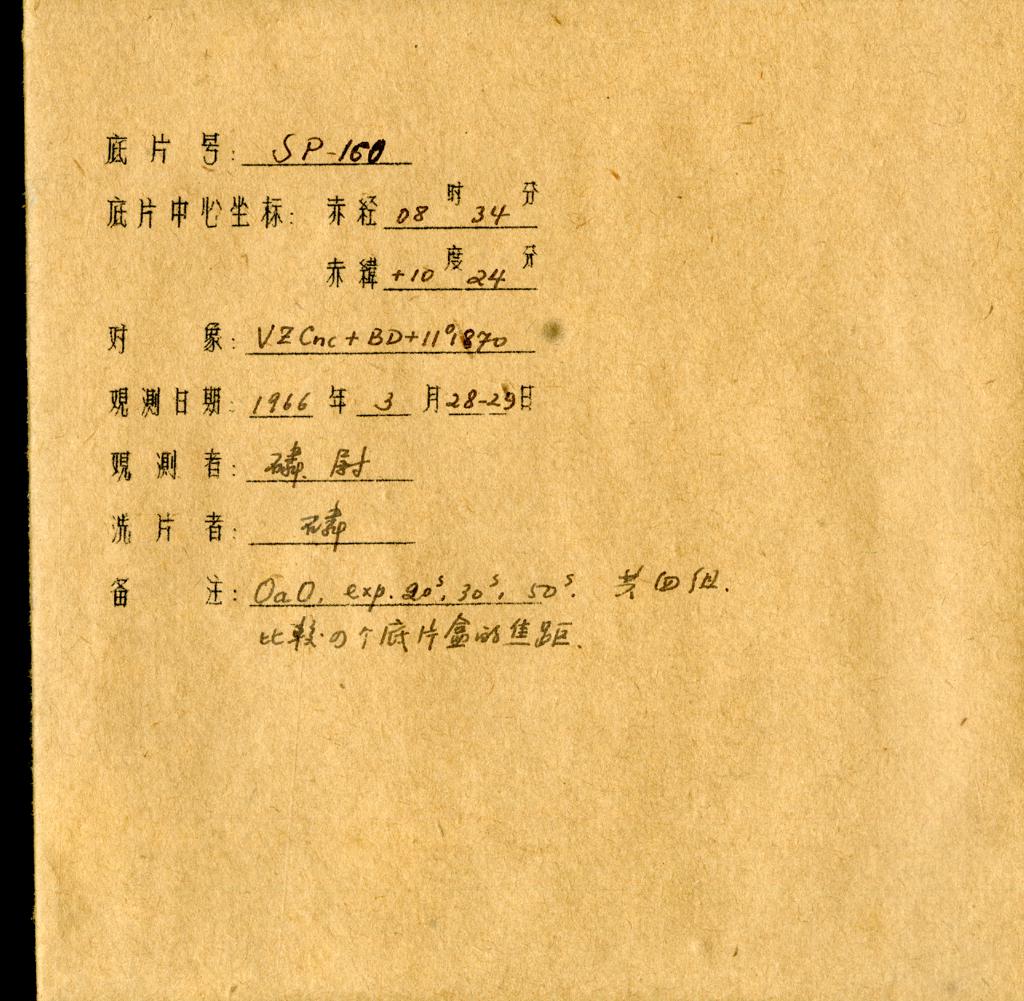 底片号: SP-160
底片中心坐标: 赤経 08 时 34 分
赤緯 +10 度 24 分
对象: VZ Cnc + BD+11°1870
观测日期: 1966 年 3 月 28-29 日
观测者: 磷 尉
洗片者: 磷
备注: OaO, exp. 20ˢ, 30ˢ, 50ˢ. 共四组.
比較四个底片盒的焦距.